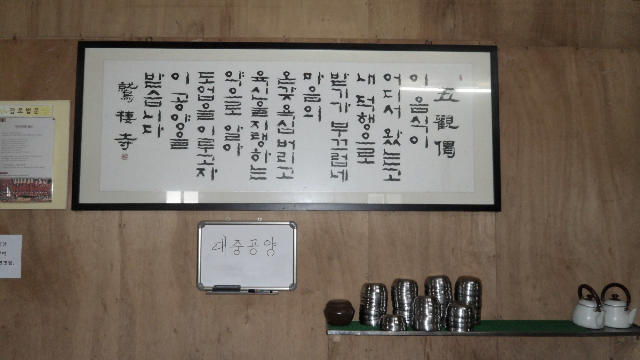 五觀偈
이 음식이
어디서 왔는고
내 덕행으로
받기가 부끄럽네
마음의
온갖 욕심 버리고
육신을 지탱하는
약으로 알아
도업을 이루고자
이 공양을
받습니다
鷲棲寺
감로법문
대중공양